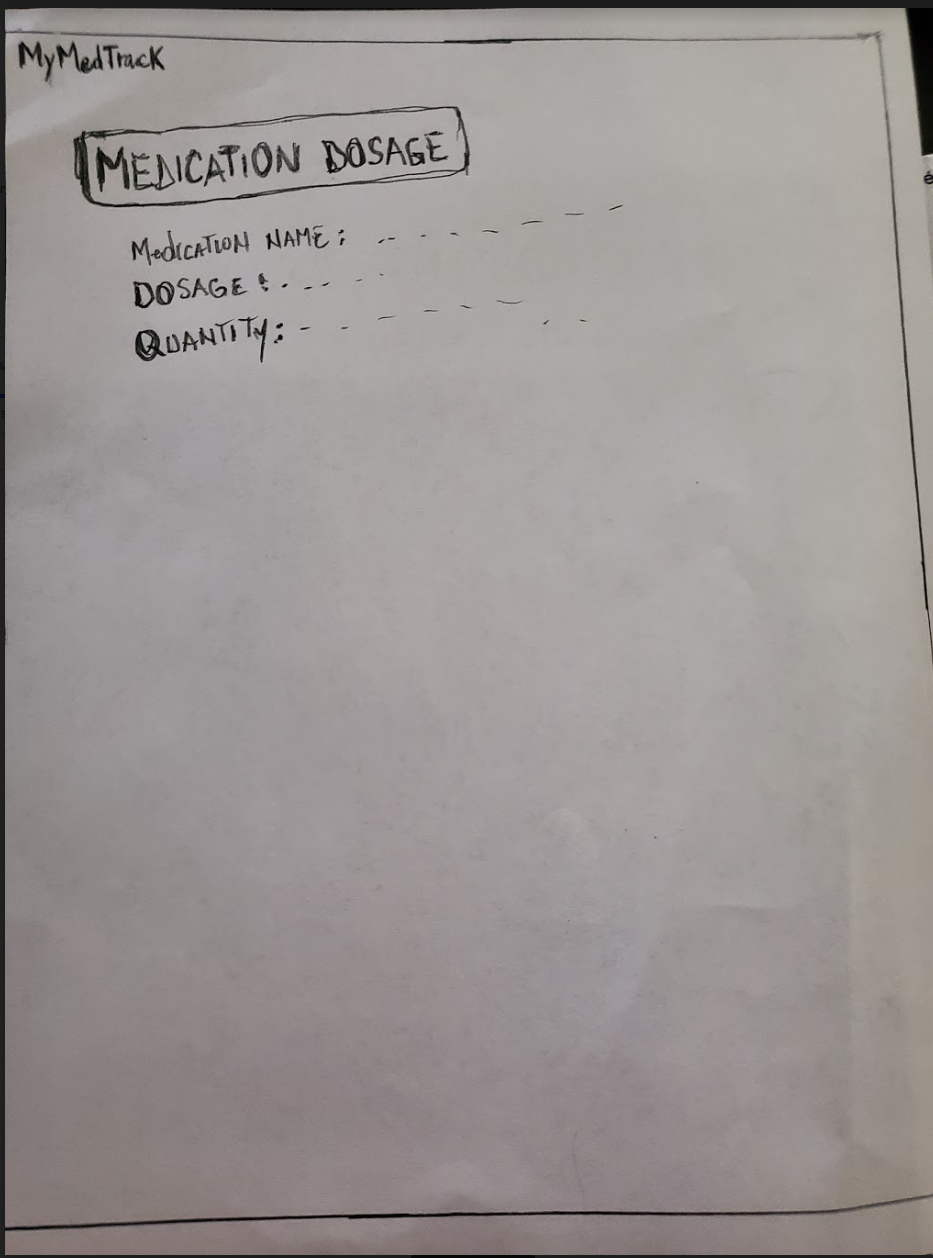 MyMedTrack
MEDICATION DOSAGE
Medication NAME:
DOSAGE:
QUANTITY:
é